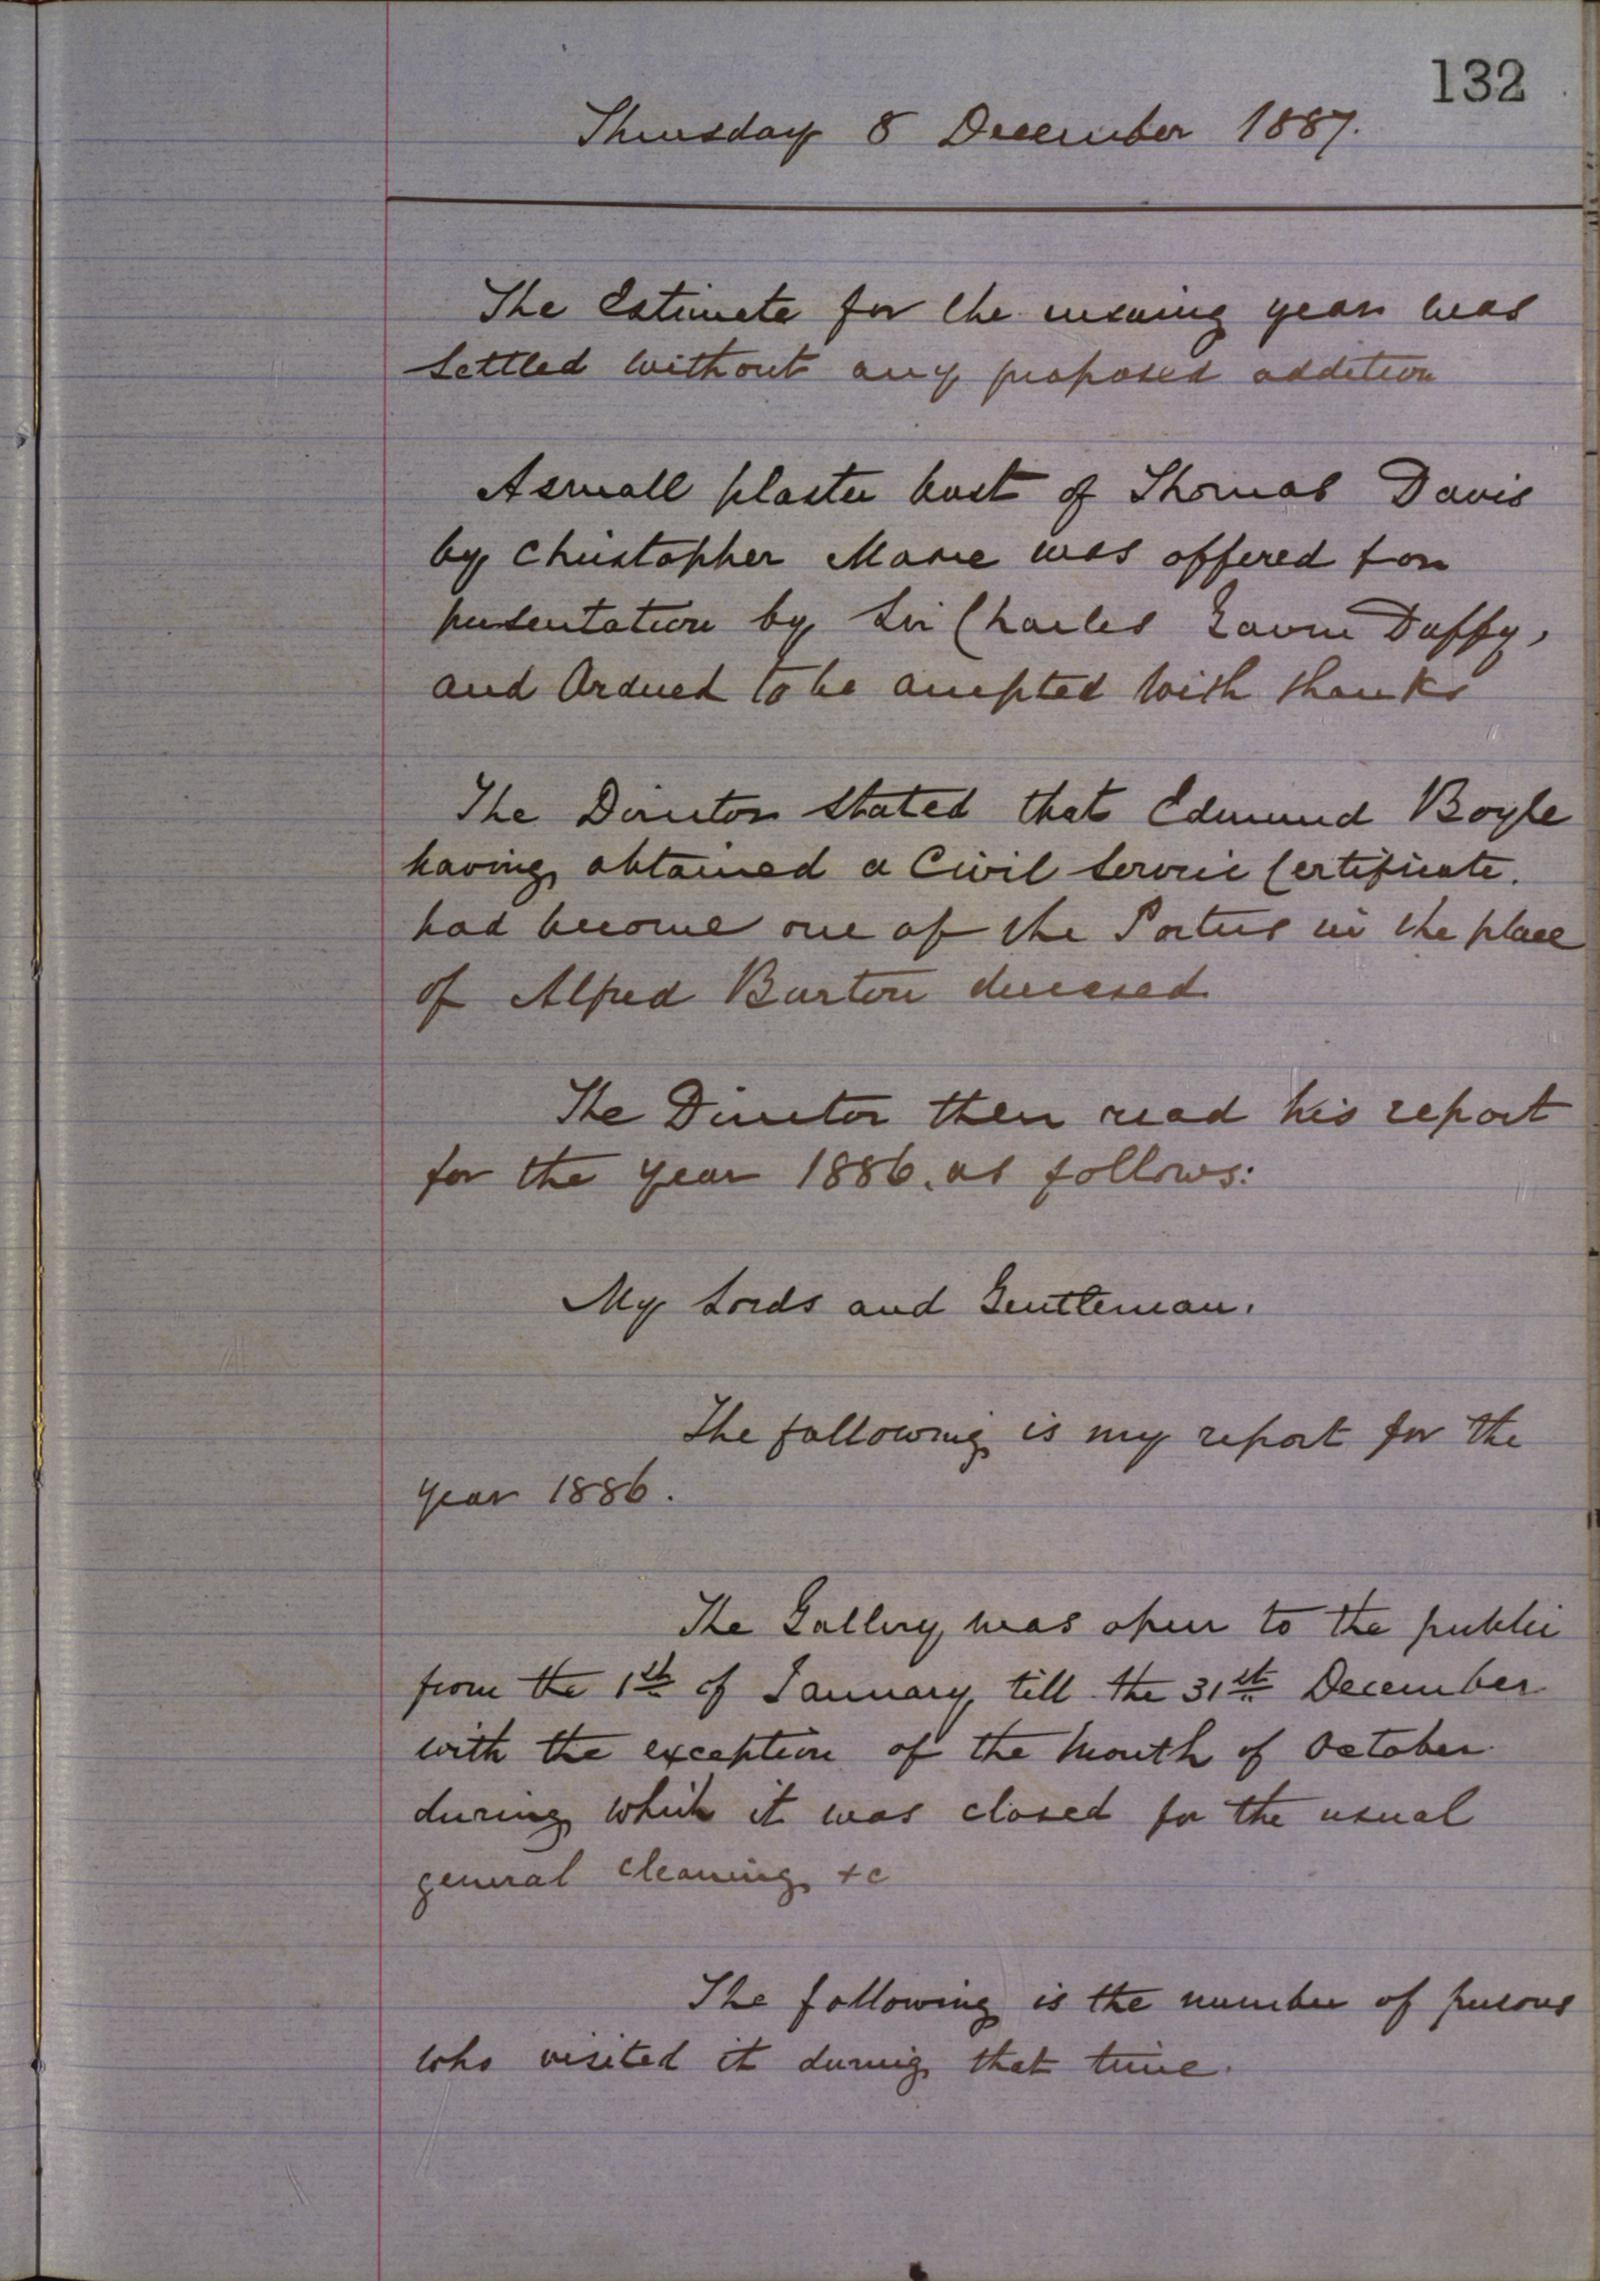 132
Thursday 8 December 1887.
The Estimate for the ensuing year was
settled without any proposed addition
A small plaster bust of Thomas Davis
by Christopher Moore was offered for
presentation by Sir Charles Gavin Duffy,
and Ordered to be accepted with thanks
The Director stated that Edmund Boyle
having obtained a Civil Service Certificate.
had become one of the Porters in the place
of Alfred Burton deceased
The Director then read his report
for the year 1886. as follows:
My Lords and Gentleman.
The following is my report for the
year 1886.
The Gallery was open to the public
from the 1st of January till the 31st December
with the exception of the Month of October
during which it was closed for the usual
general cleaning +c
The following is the number of persons
who visited it during that time.